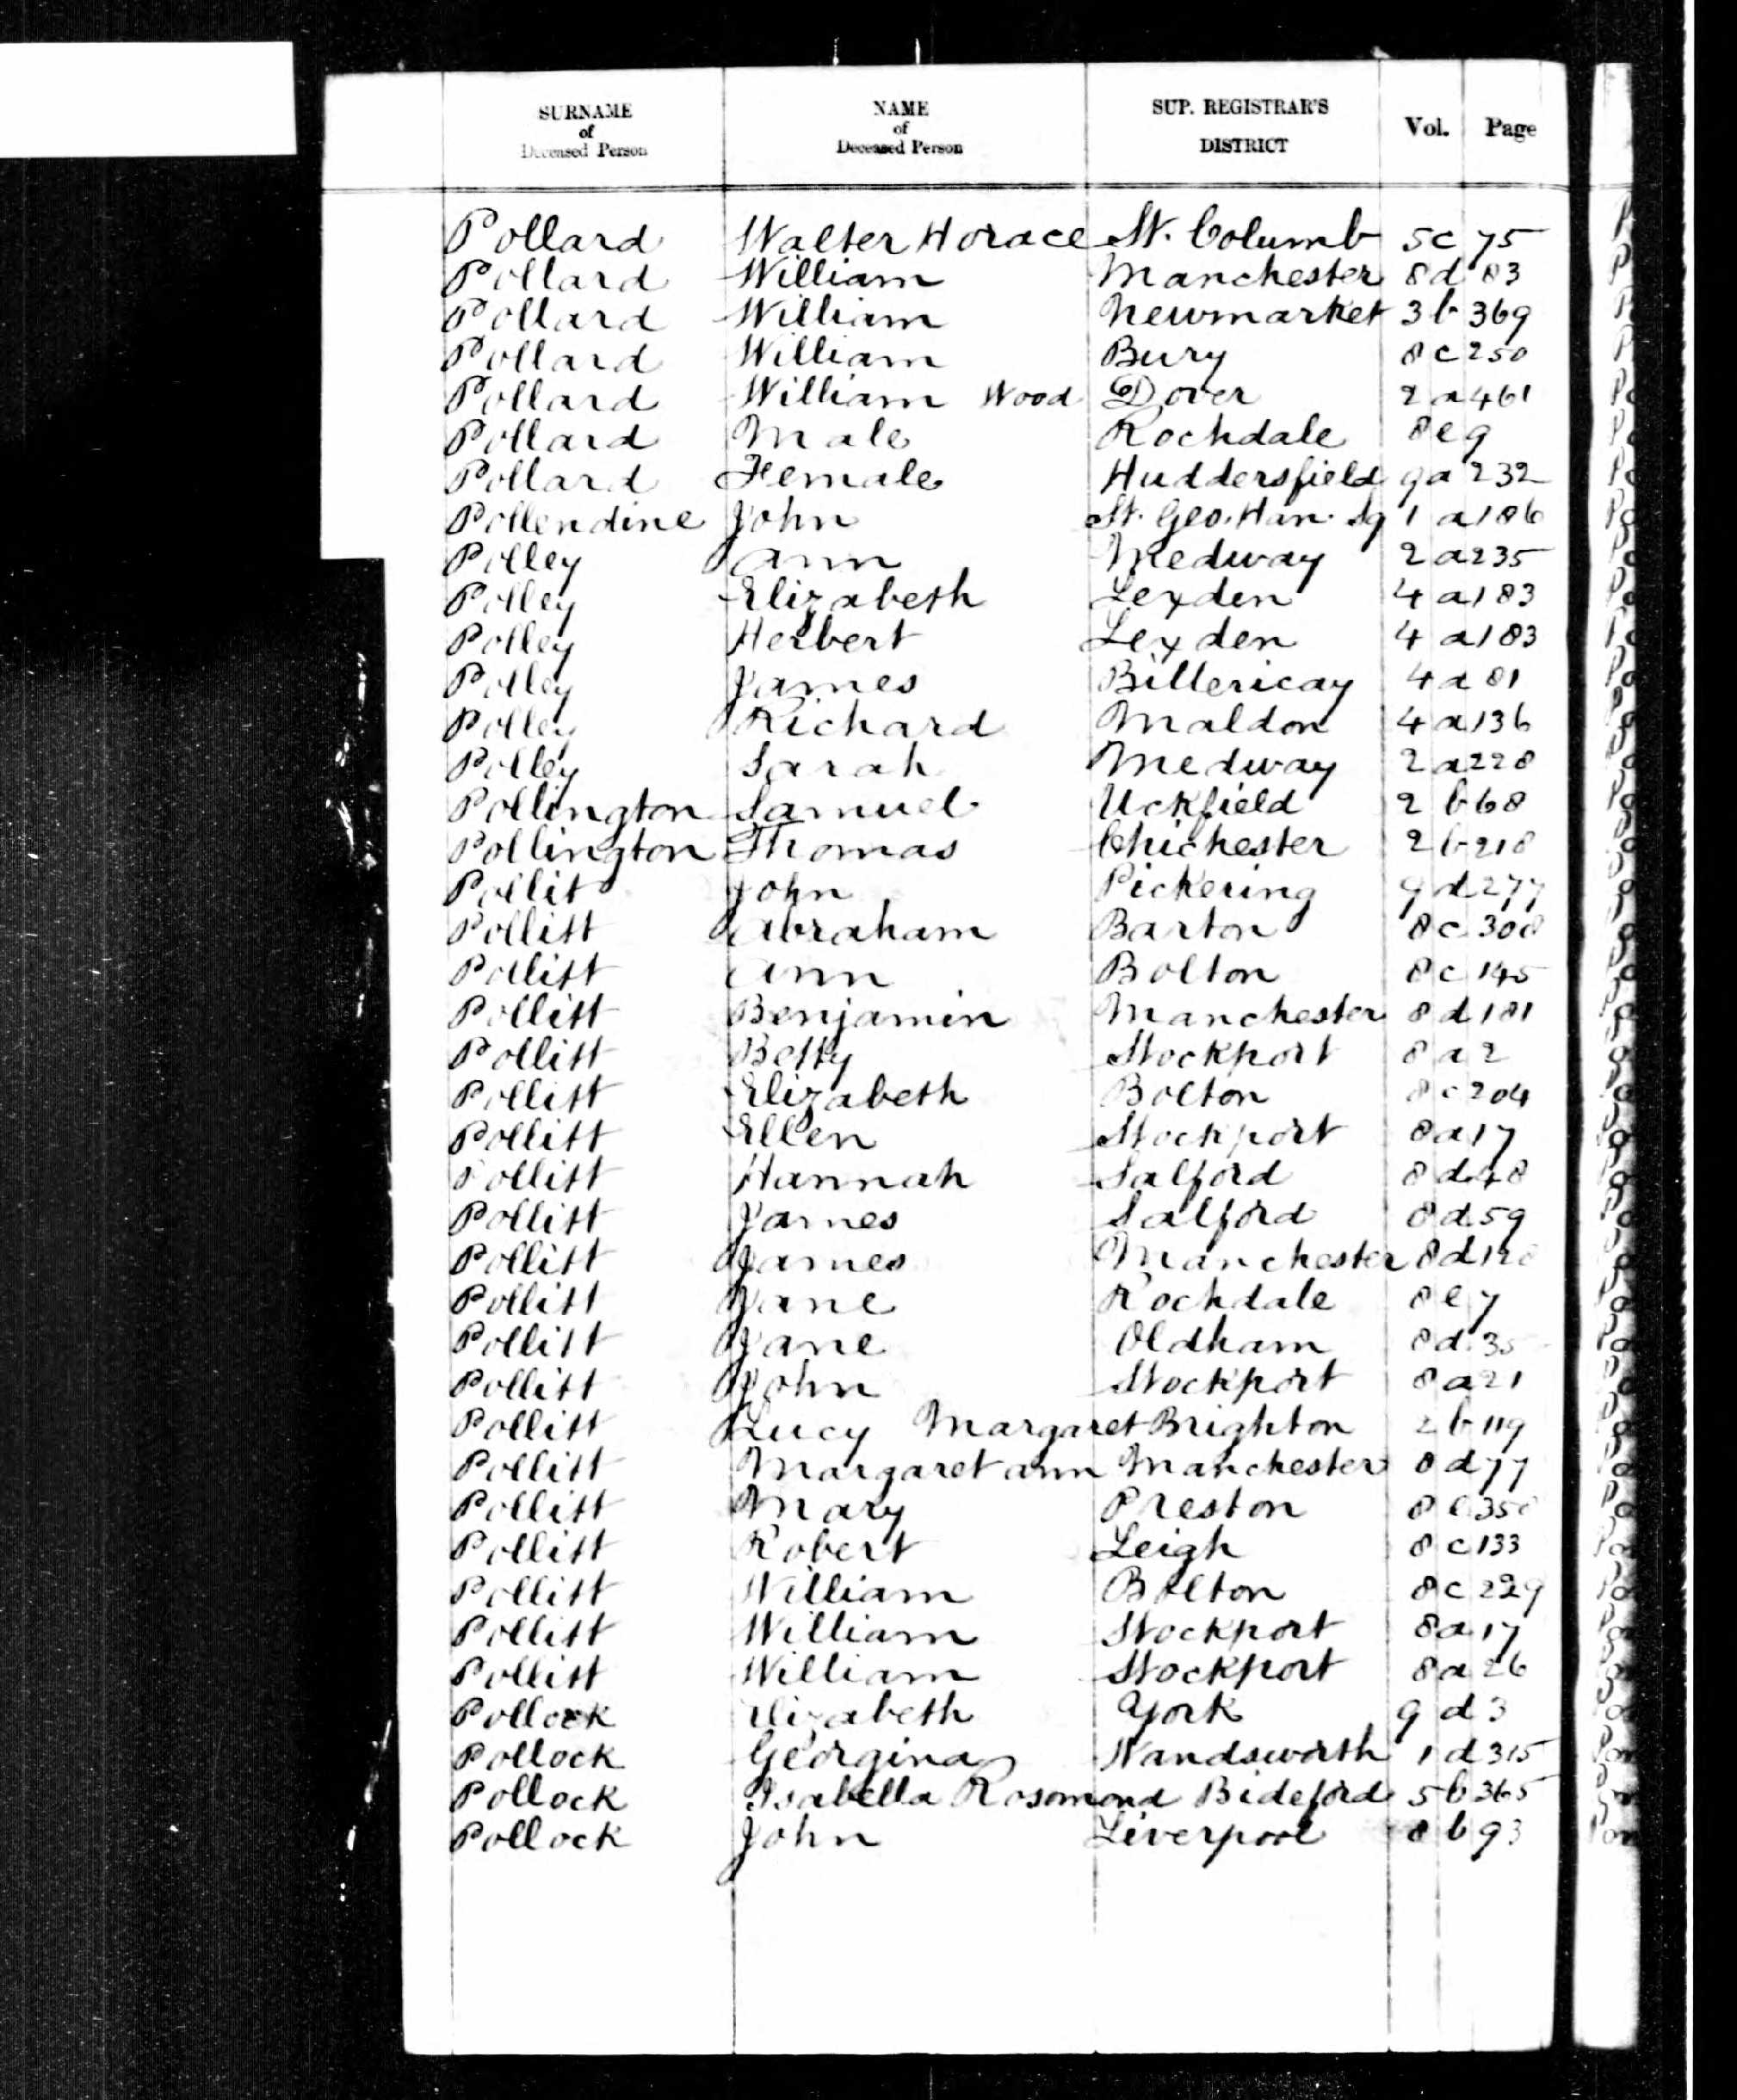 SURNAME of Deceased Person NAME of Deceased Person SUP. REGISTRAR'S DISTRICT Vol. Page
Pollard Walter Horace St. Columb 5c 75
Pollard William Manchester 8d 83
Pollard William Newmarket 3b 369
Pollard William Bury 8c 250
Pollard William Wood Dover 2a 461
Pollard Male Rochdale 8e 9
Pollard Female Huddersfield 9a 232
Pollendine John St. Geo. Han. Sq 1a 186
Polley Ann Medway 2a 235
Polley Elizabeth Lexden 4a 183
Polley Herbert Lexden 4a 183
Polley James Billericay 4a 81
Polley Richard Maldon 4a 136
Polley Sarah Medway 2a 228
Pollington Samuel Uckfield 2b 68
Pollington Thomas Chichester 2b 218
Pollit John Pickering 9d 277
Pollitt Abraham Barton 8c 308
Pollitt Ann Bolton 8c 145
Pollitt Benjamin Manchester 8d 181
Pollitt Betty Stockport 8a 2
Pollitt Elizabeth Bolton 8c 204
Pollitt Ellen Stockport 8a 17
Pollitt Hannah Salford 8d 48
Pollitt James Salford 8d 59
Pollitt James Manchester 8d
Pollitt Jane Rochdale 8e 7
Pollitt Jane Oldham 8d
Pollitt John Stockport 8a 21
Pollitt Lucy Margaret Brighton 2b 119
Pollitt Margaret Ann Manchester 8d 77
Pollitt Mary Preston 8e
Pollitt Robert Leigh 8c 133
Pollitt William Bolton 8c 229
Pollitt William Stockport 8a 17
Pollitt William Stockport 8a 26
Pollock Elizabeth York 9d 3
Pollock Georgina Wandsworth 1d 315
Pollock Isabella Rosomond Bideford 5b 365
Pollock John Liverpool 8b 93